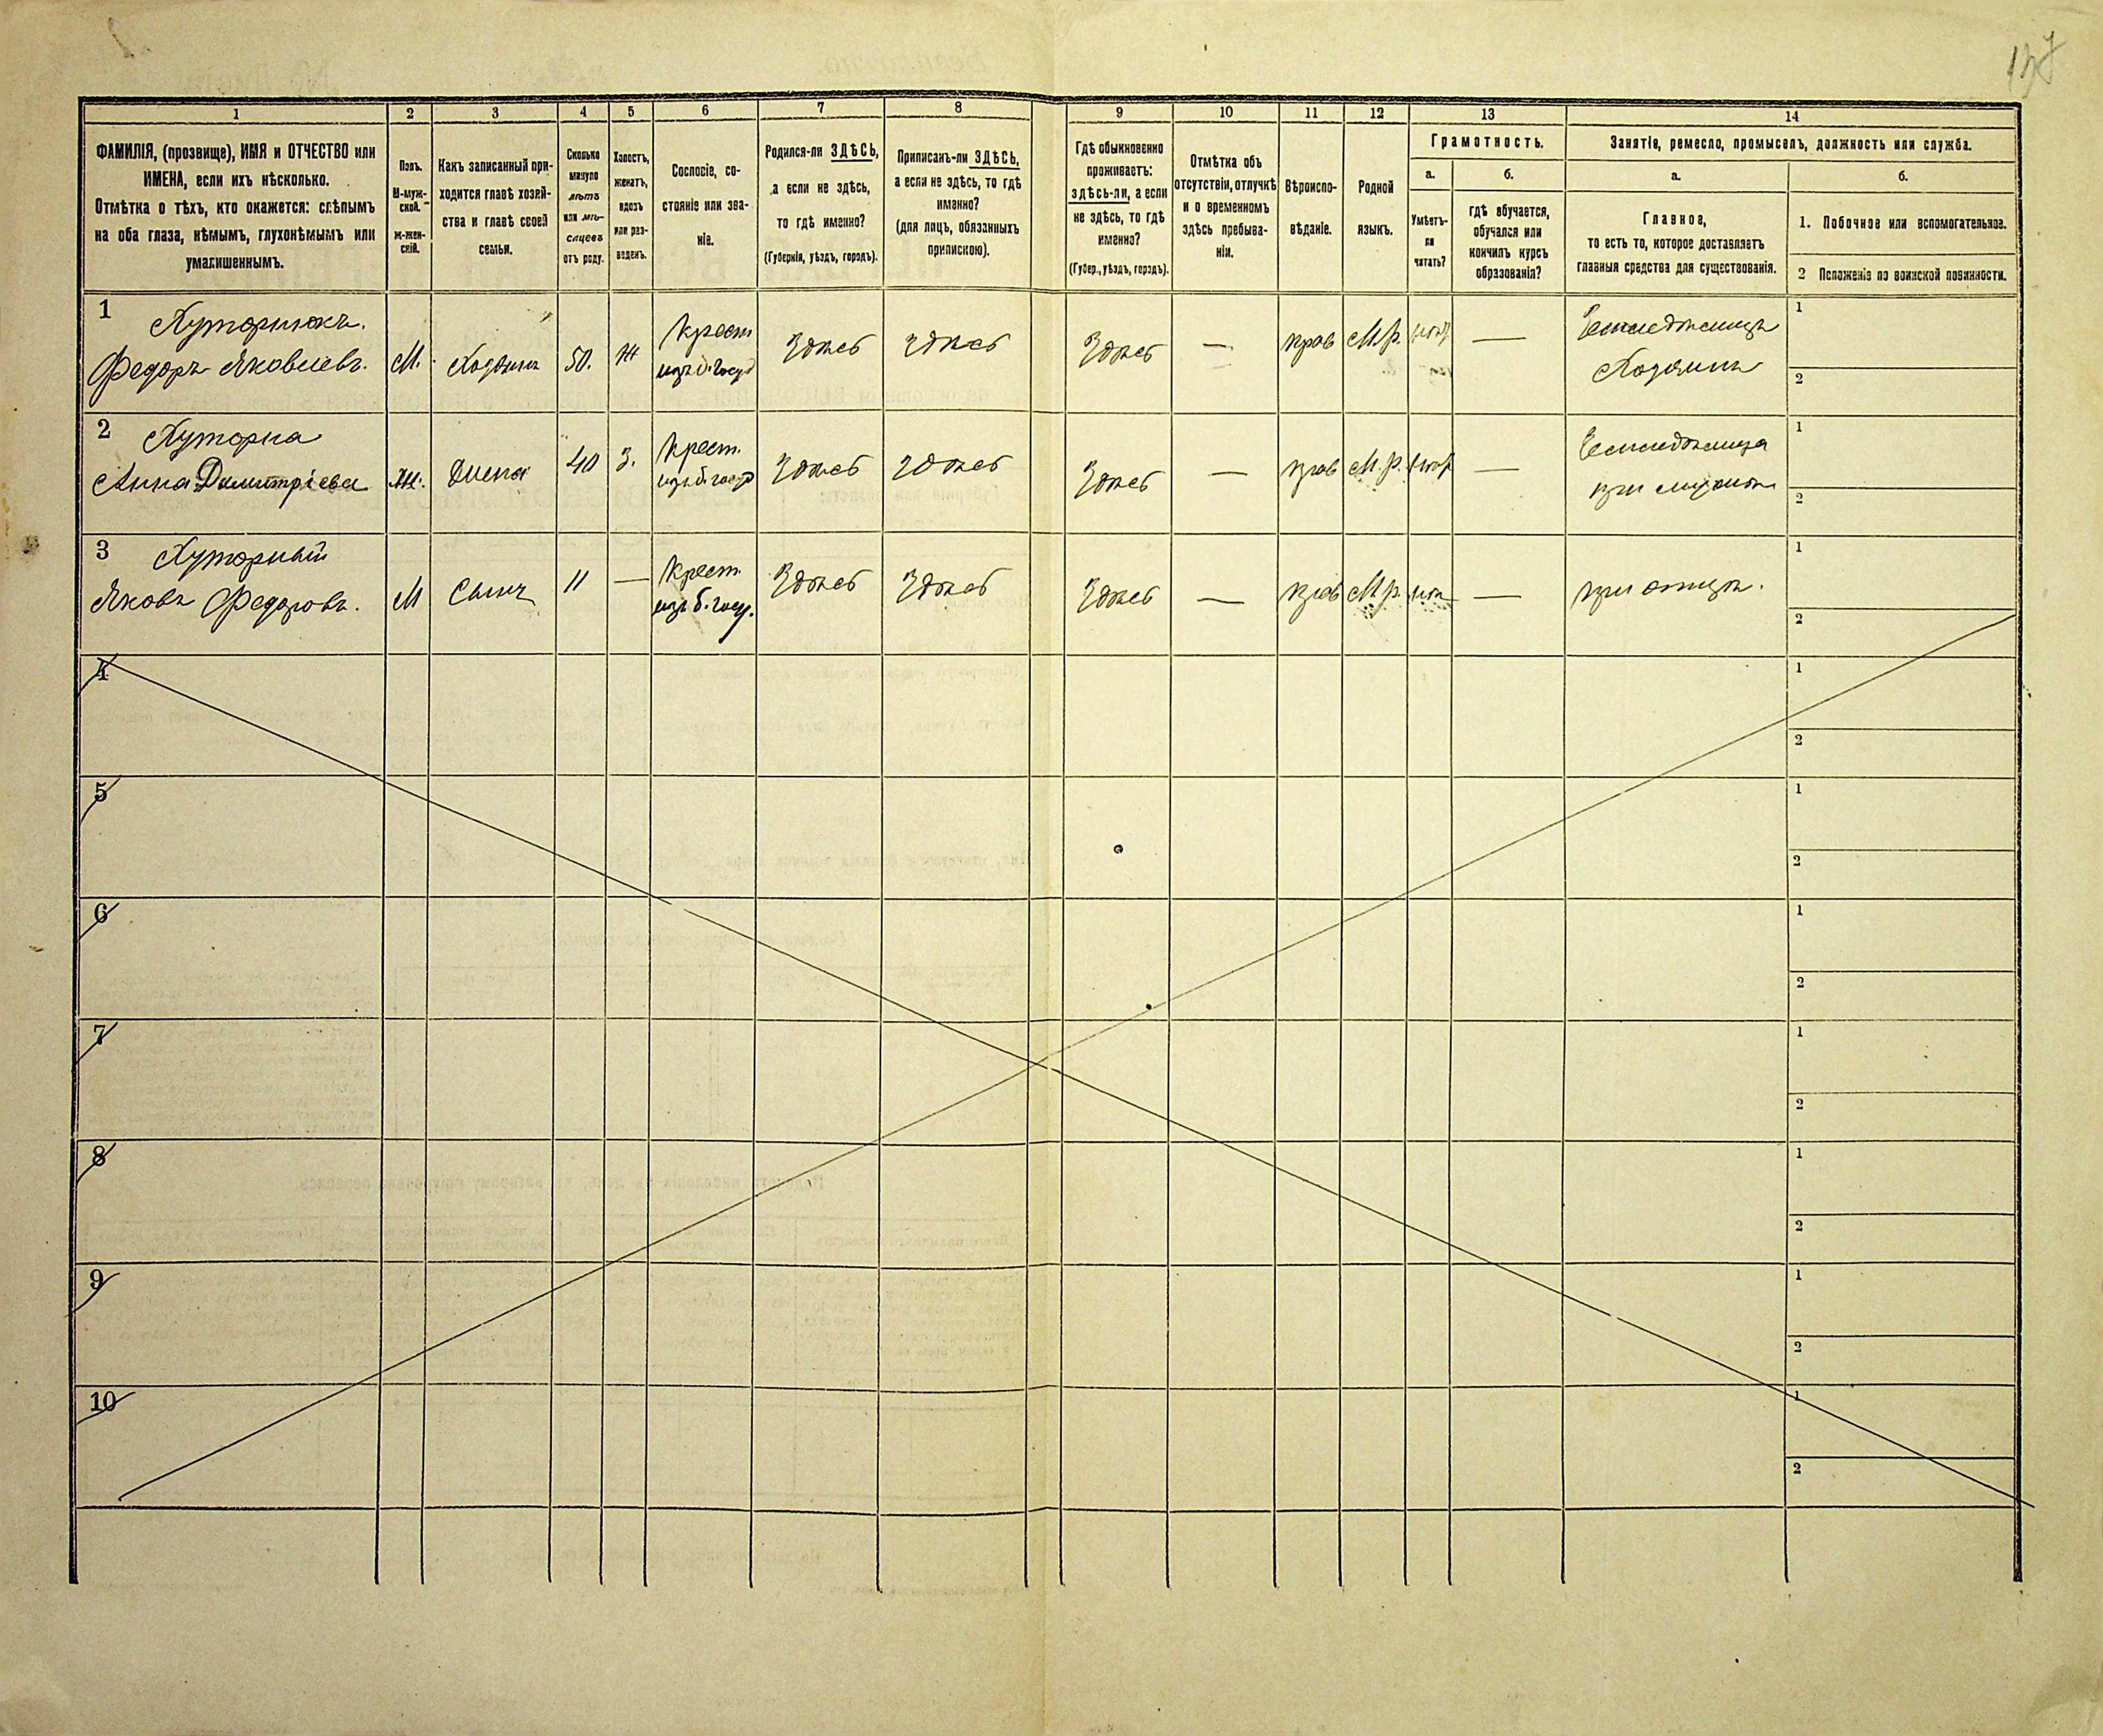 137
1 2 3 4 5 6 7 8 9 10 11 12 13 14
ФАМИЛІЯ, (прозвище), ИМЯ и ОТЧЕСТВО или
ИМЕНА, если ихъ нѣсколько.
Отмѣтка о тѣхъ, кто окажется: слѣпымъ
на оба глаза, нѣмымъ, глухонѣмымъ или
умалишеннымъ.
Полъ.
М-муж-
ской.
ж-жен-
скій.
Какъ записанный при-
ходится главѣ хозяй-
ства и главѣ своей
семьи.
Сколько
минуло
лѣтъ
или мѣ-
сяцевъ
отъ роду.
Холостъ,
женатъ,
вдовъ
или раз-
веденъ.
Сословіе, со-
стояніе или зва-
ніе.
Родился-ли ЗДѢСЬ,
а если не здѣсь,
то гдѣ именно?
(Губернія, уѣздъ, городъ).
Приписанъ-ли ЗДѢСЬ,
а если не здѣсь, то гдѣ
именно?
(для лицъ, обязанныхъ
припискою).
Гдѣ обыкновенно
проживаетъ:
здѣсь-ли, а если
не здѣсь, то гдѣ
именно?
(Губер., уѣздъ, городъ).
Отмѣтка объ
отсутствіи, отлучкѣ
и о временномъ
здѣсь пребыва-
ніи.
Вѣроиспо-
вѣданіе.
Родной
языкъ.
Грамотность.
а.
Умѣетъ-
ли
читать?
б.
гдѣ обучается,
обучался или
кончилъ курсъ
образованія?
Занятіе, ремесло, промыселъ, должность или служба.
а.
Главное,
то есть то, которое доставляетъ
главныя средства для существованія.
б.
1. Побочное или вспомогательное.
2 Положеніе по воинской повинности.
1 Хуторнюкъ.
Федоръ Яковлевъ. М. Хозяинъ 50. Ж Крест изъ б. госуд Здѣсь Здѣсь Здѣсь — прав М.р. — Земледѣлецъ
Хозяинъ
1
2
2 Хуторна
Анна Димитріева Ж. Жена 40 З. Крест. изъ б. госуд Здѣсь Здѣсь Здѣсь — прав М.р. — Земледѣлица
при мужѣ
1
2
3 Хуторный
Яковъ Федоровъ. М Сынъ 11 — Крест. изъ б. госу. Здѣсь Здѣсь Здѣсь — прав М.р. — при отцѣ.
1
2
4
1
2
5
1
2
6
1
2
7
1
2
8
1
2
9
1
2
10
1
2